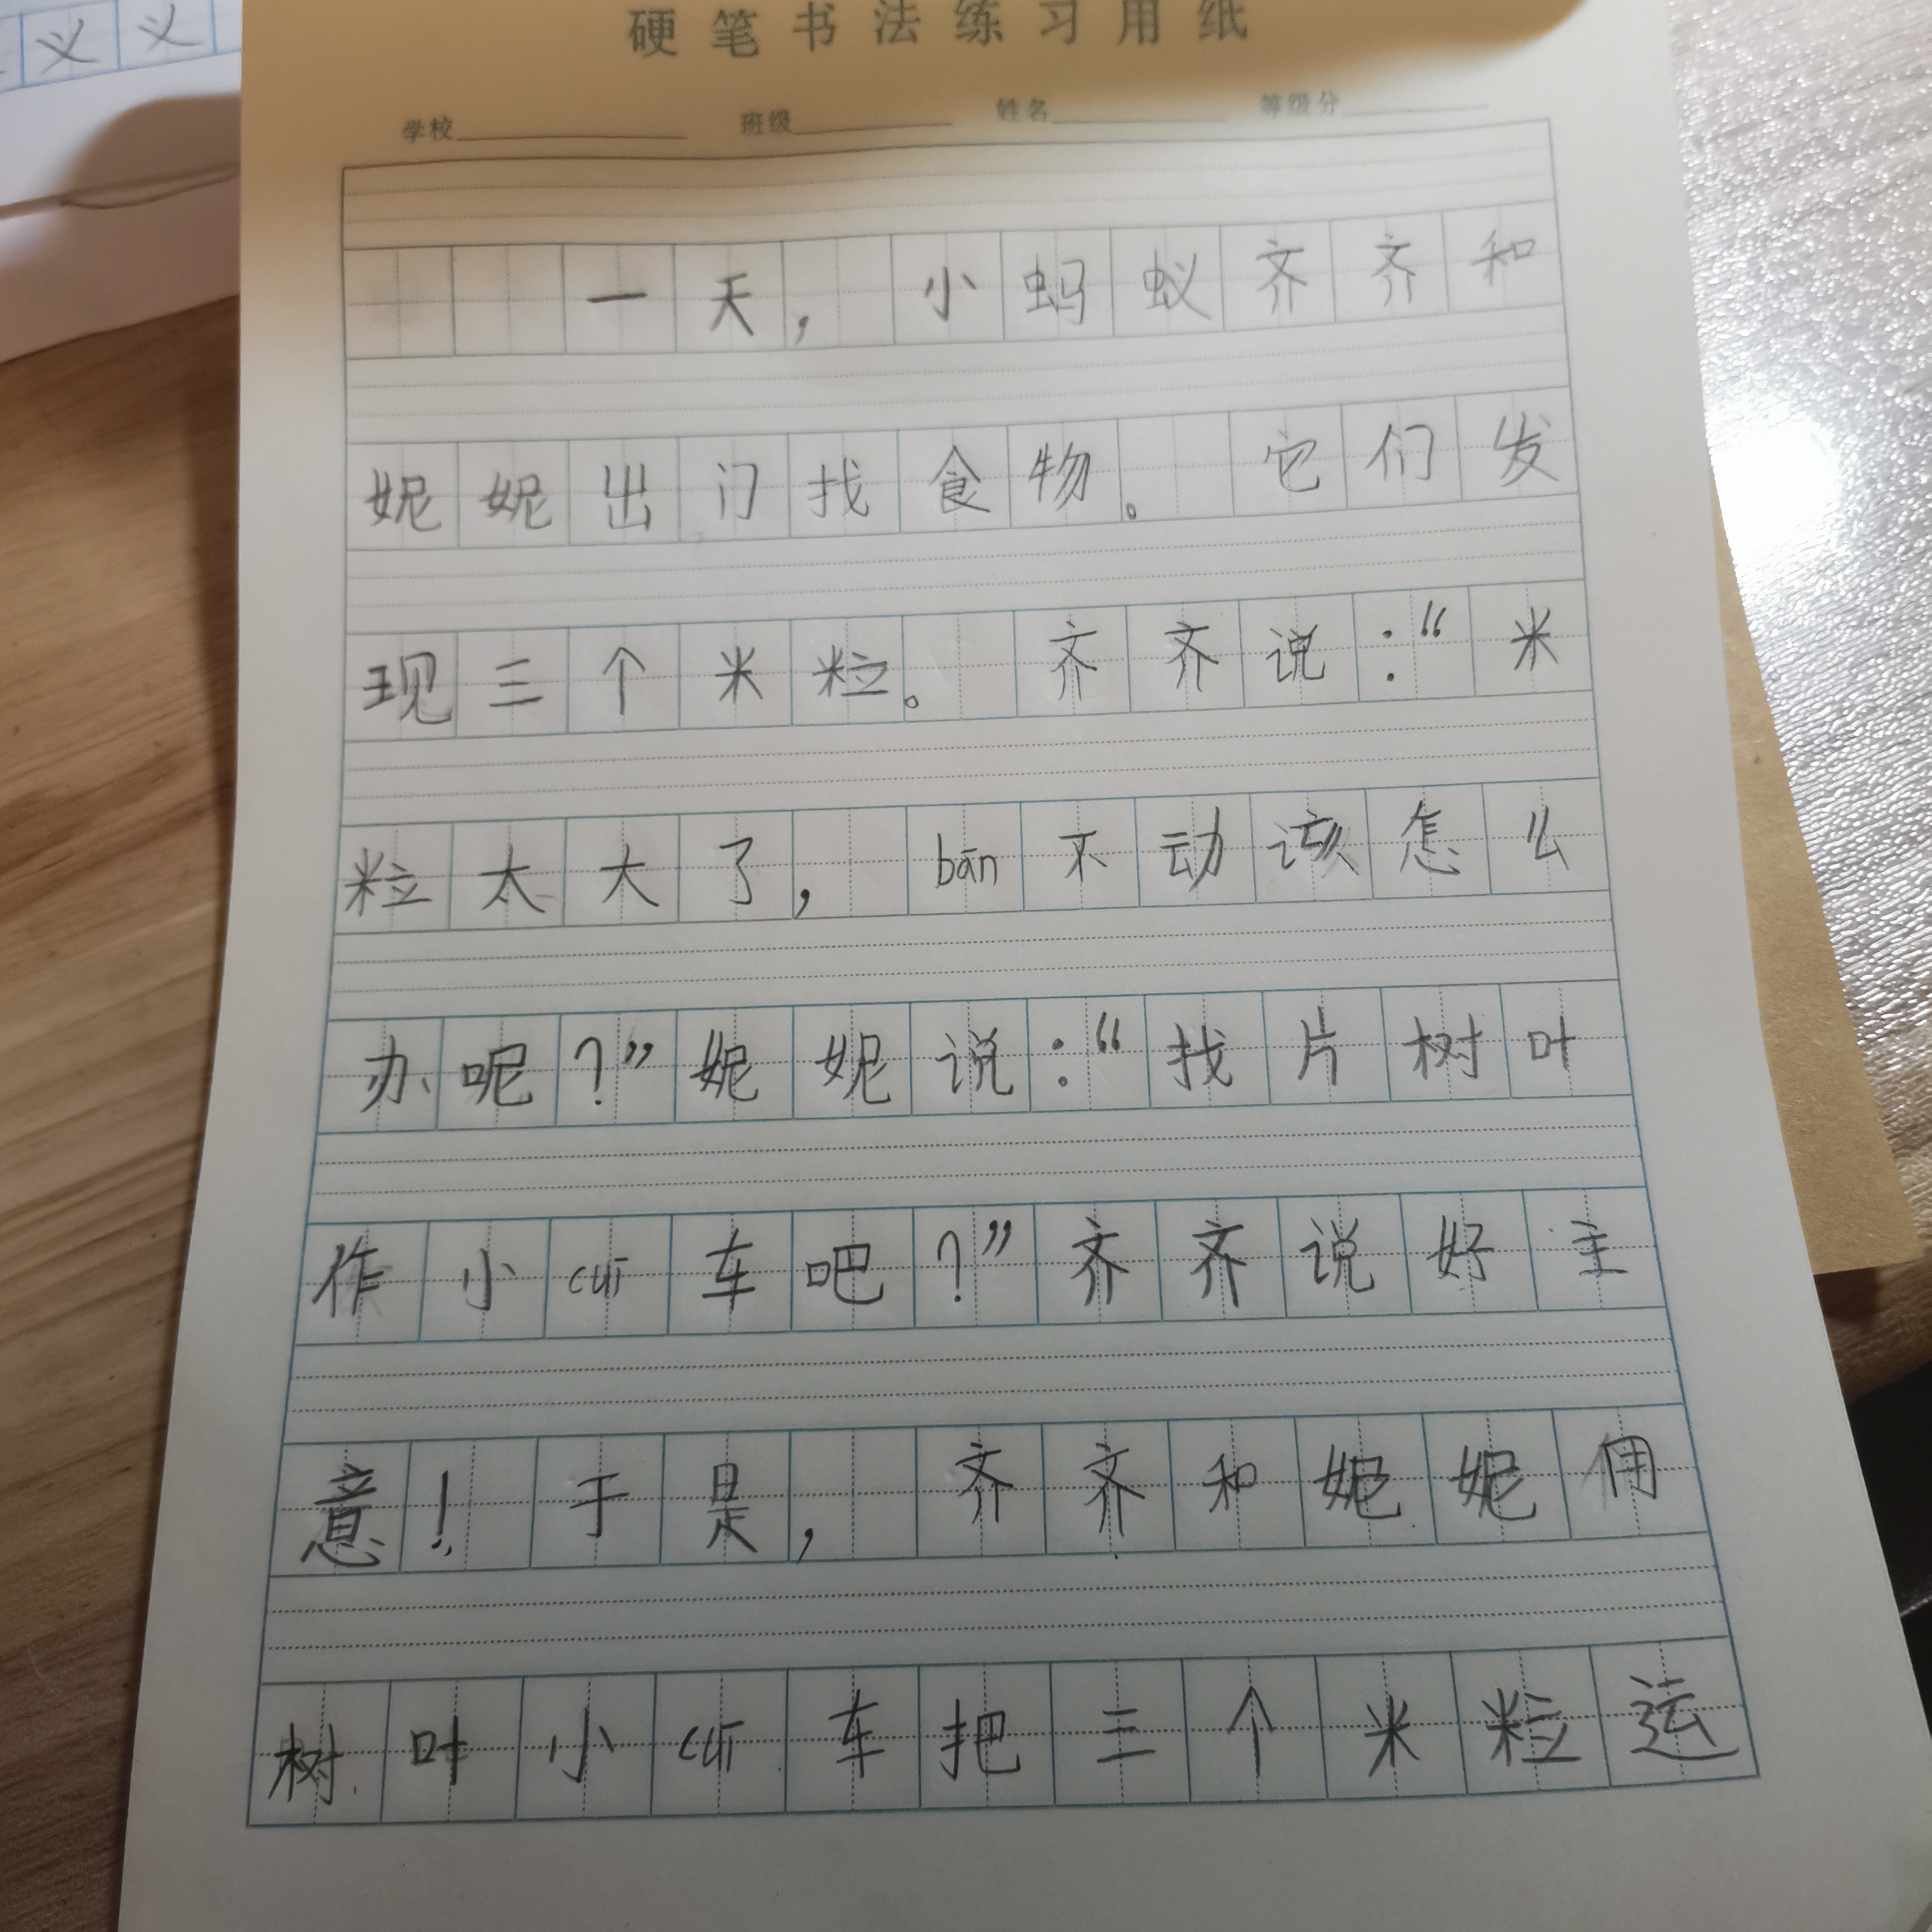 义 义
硬笔书法练习用纸
学校 班级 姓名 等级分
一天，小蚂蚁齐齐和
妮妮出门找食物。它们发
现三个米粒。齐齐说：“米
粒太大了，bān不动该怎么
办呢？”妮妮说：“找片树叶
作小cuī车吧？”齐齐说好主
意！于是，齐齐和妮妮佣
树叶小cuī车把三个米粒运